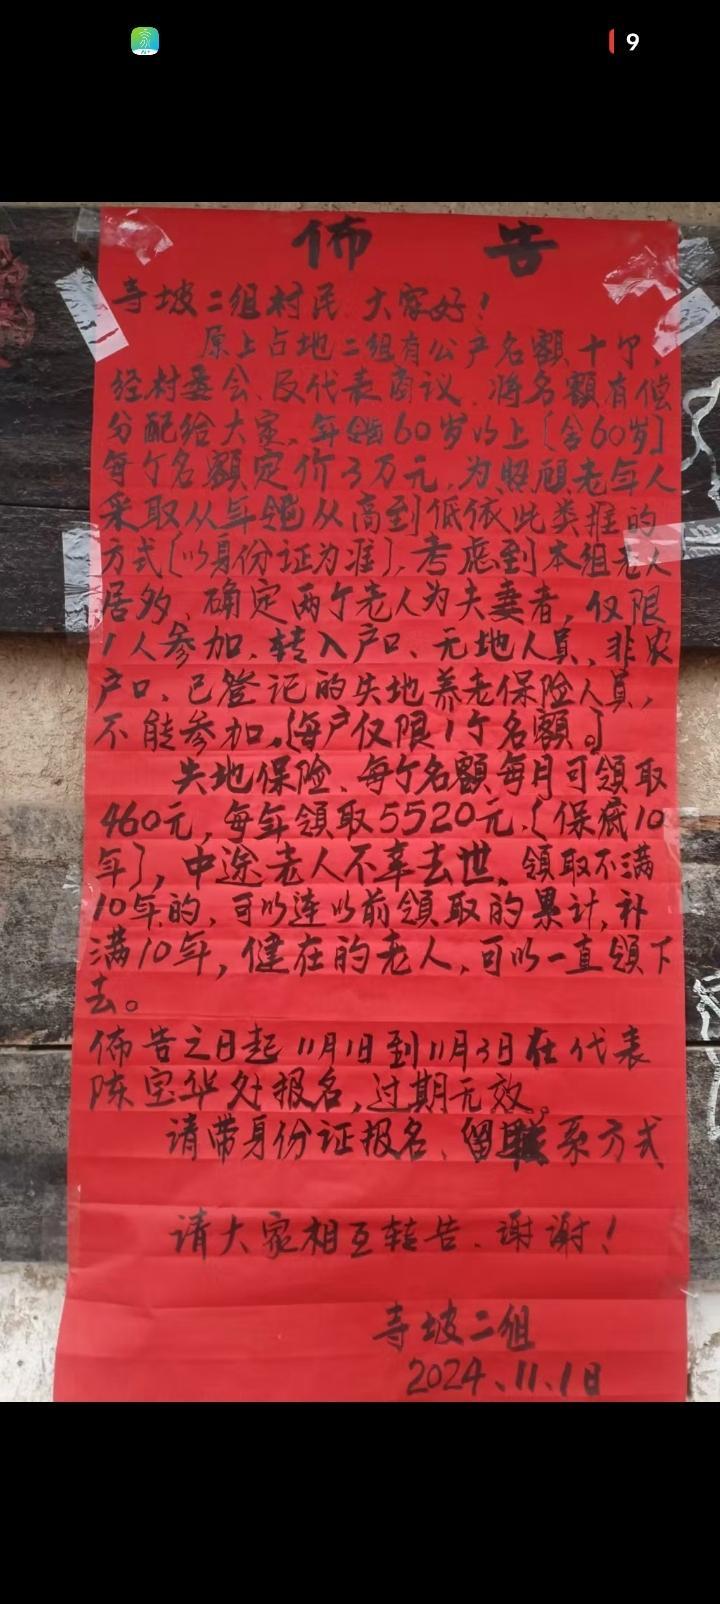 9
佈告
寺坡二组村民 大家好!
原上占地二组有公产名额十个,
经村委会、及代表商议、将名额有偿
分配给大家、年龄60岁以上〔含60岁〕
每个名额定价3万元、为照顾老年人
采取从年龄从高到低依此类推的
方式〔以身份证为准〕,考虑到本组老人
居多、确定两个老人为夫妻者,仅限
1人参加、转入户口、无地人员、非农
户口、已登记的失地养老保险人员,
不能参加。〔每户仅限1个名额。〕
失地保险、每个名额每月可领取
460元,每年领取5520元、〔保底10
年〕,中途老人不幸去世、领取不满
10年的,可以连以前领取的累计,补
满10年,健在的老人,可以一直领下
去。
佈告之日起11月1日到11月3日在代表
陈宝华处报名,过期无效。
请带身份证报名、留联系方式
请大家相互转告、谢谢!
寺坡二组
2024、11、1日